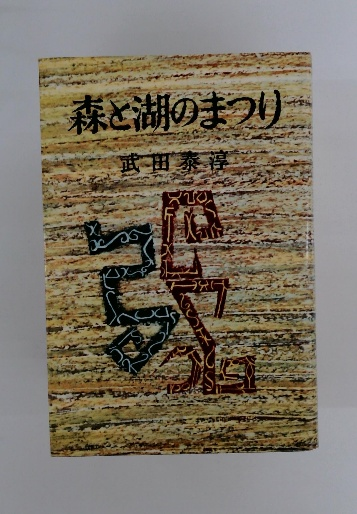 森と湖のまつり
武田泰淳